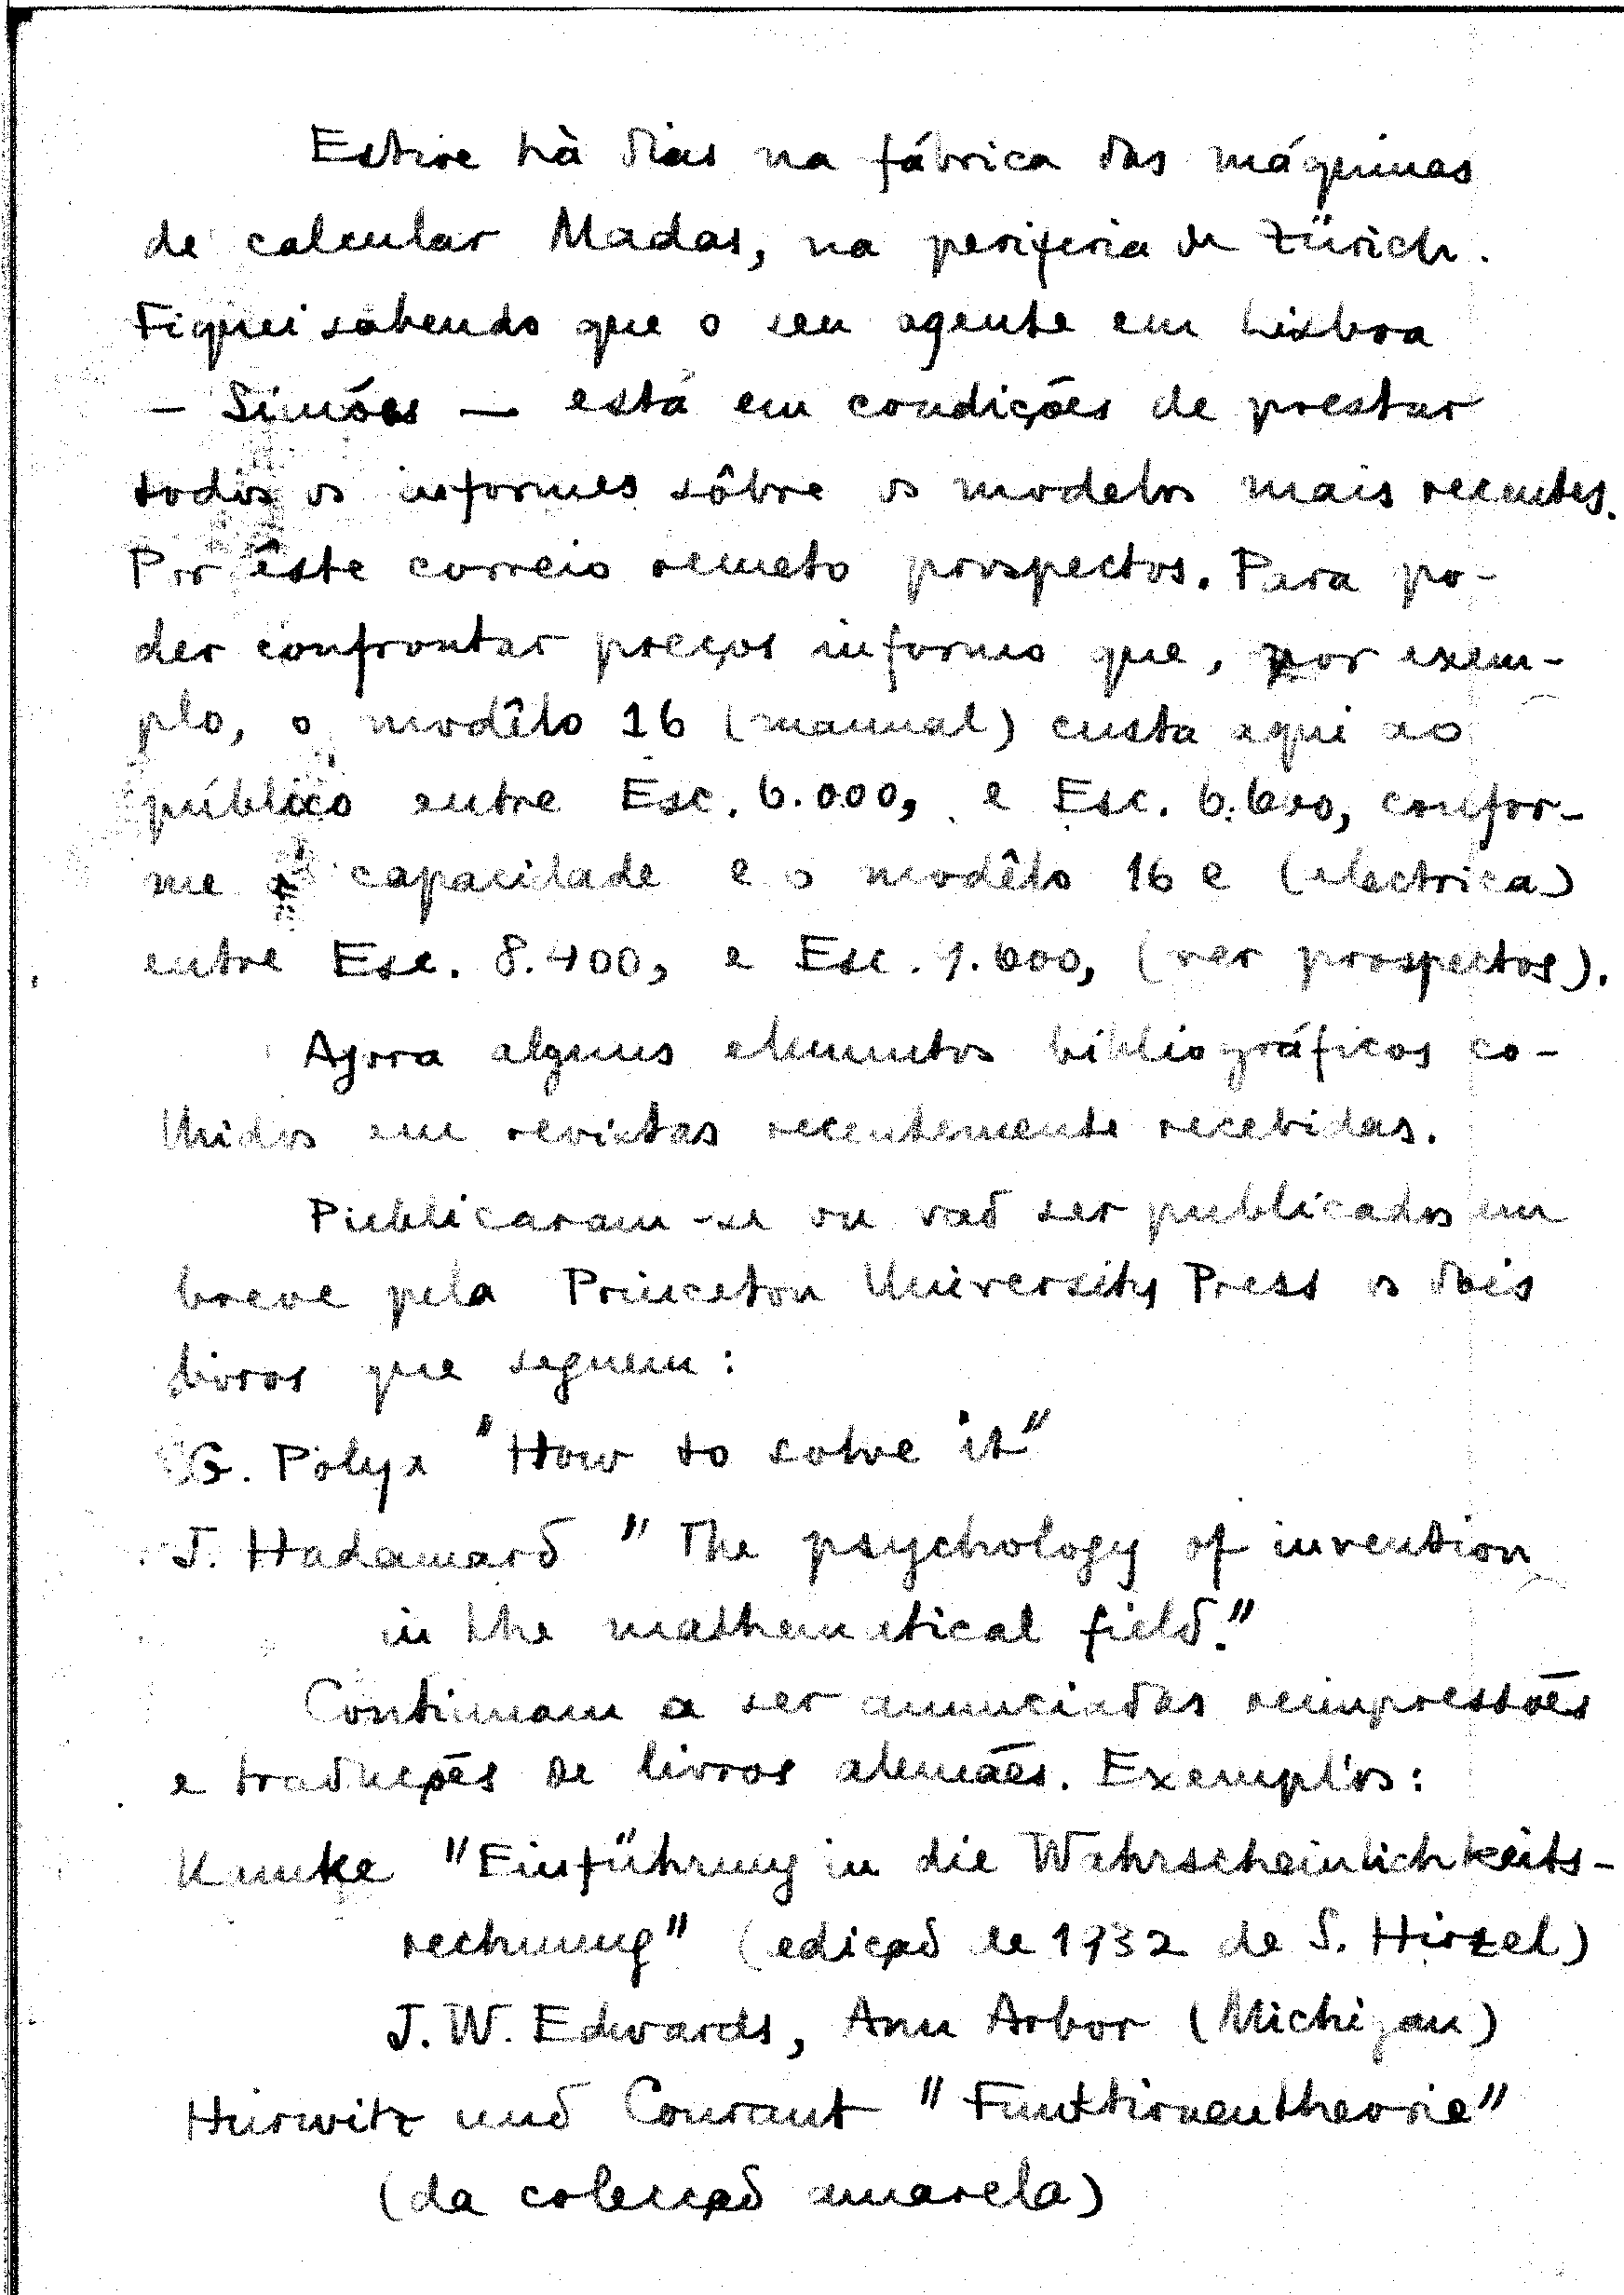 Estive hà dias na fábrica das máquinas
de calcular Madas, na periferia de Zürich.
Fiquei sabendo que o seu agente em Lisboa
— Simões — está em condições de prestar
todos os informes sôbre os modelos mais recentes.
Por êste correio remeto prospectos. Para po-
der confrontar preços informo que, por exem-
plo, o modêlo 16 (manual) custa aqui ao
público entre Esc. 6.000, e Esc. 6.600, confor-
me a capacidade e o modêlo 16 e (electrica)
entre Esc. 8.400, e Esc. 9.600, (ver prospectos).
Agora alguns elementos bibliográficos co-
lhidos em revistas recentemente recebidas.
Publicaram-se ou vaõ ser publicados em
breve pela Princeton University Press os dois
livros que seguem:
G. Pólya "How to solve it"
J. Hadamard "The psychology of invention
in the mathematical field."
Continuam a ser anunciadas reimpressões
e traduções de livros alemães. Exemplos:
Kamke "Einführung in die Wahrscheinlichkeits-
rechnung" (ediçaõ de 1932 de S. Hirzel)
J. W. Edwards, Ann Arbor (Michigan)
Hurwitz und Courant "Funktionentheorie"
(da colecçaõ amarela)